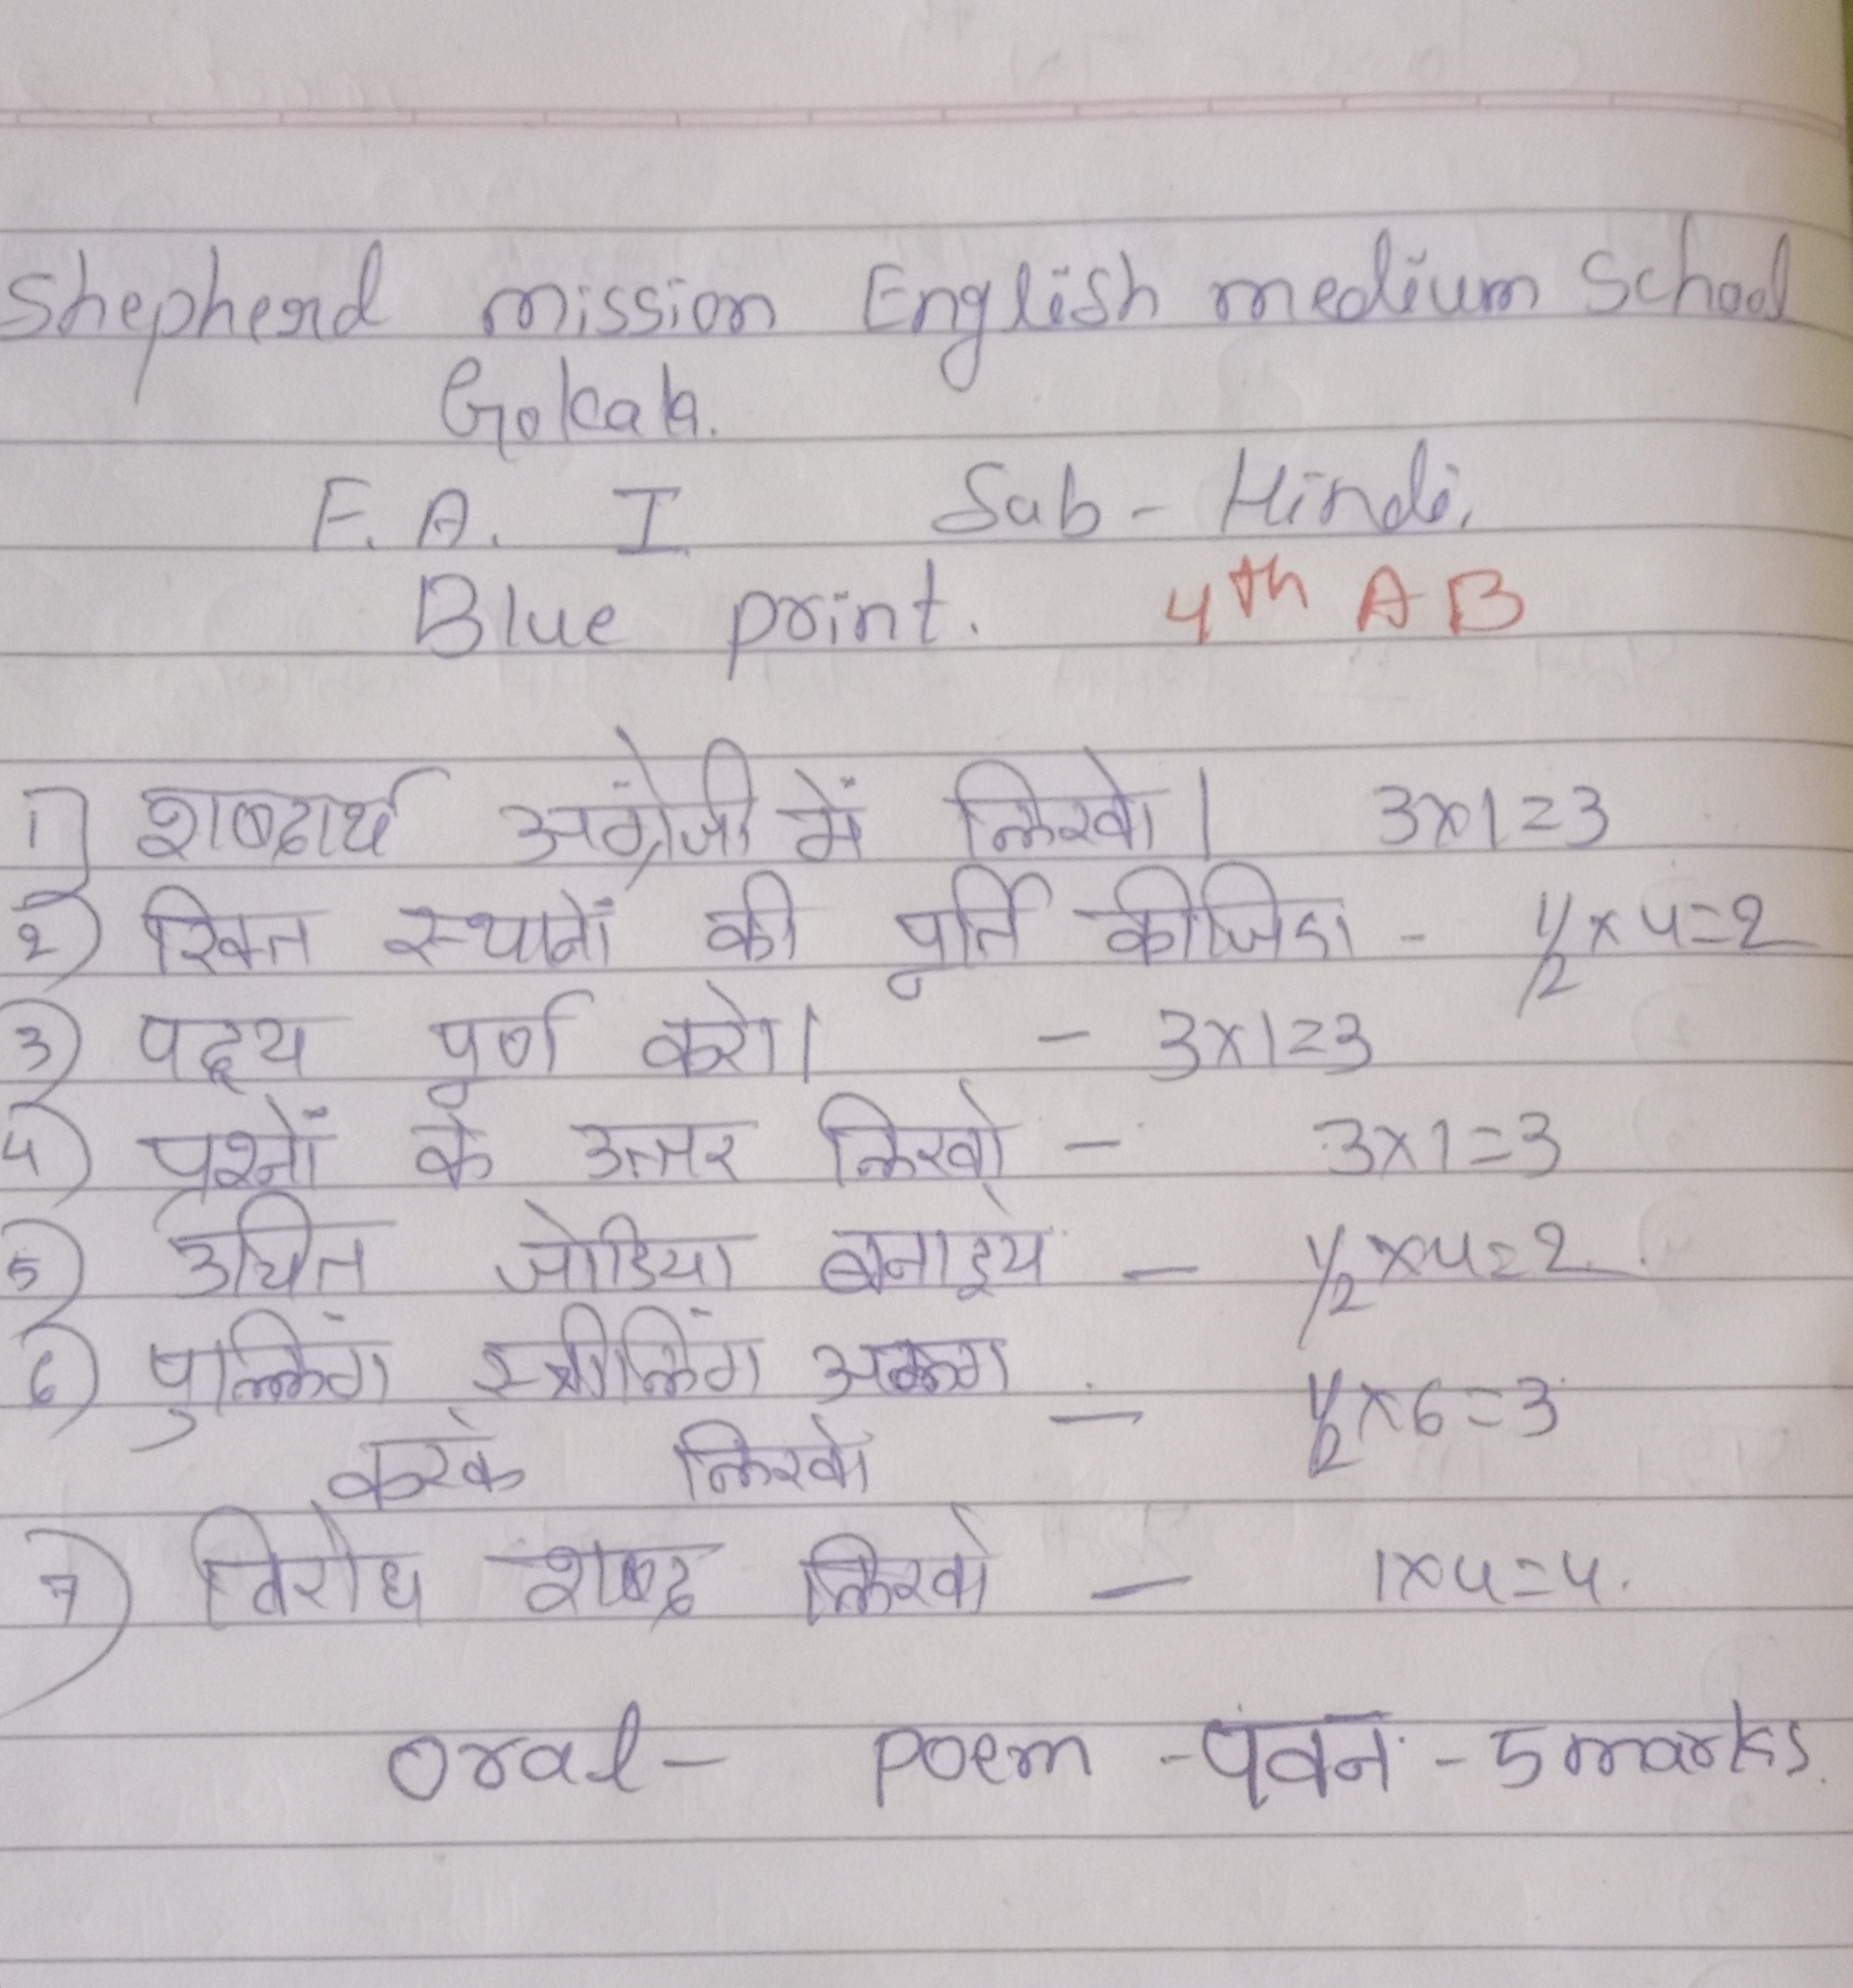 Shepherd mission English medium School
Gokak.
F. A. I Sub - Hindi,
Blue print. 4th A B
1) शब्दार्थ अंग्रेजी में लिखो। 3x1=3
2) रिक्त स्थानों की पूर्ति कीजिए - 1/2 x 4=2
3) पद्य पूर्ण करो। - 3x1=3
4) प्रश्नों के उत्तर लिखो - 3x1=3
5) उचित जोडिया बनाइये - 1/2 x4=2.
6) पुल्लिंग स्त्रीलिंग अलग - 1/2 x 6=3
करके लिखो
7) विरोध शब्द लिखो - 1x4=4.
Oral - Poem - पवन - 5 marks.